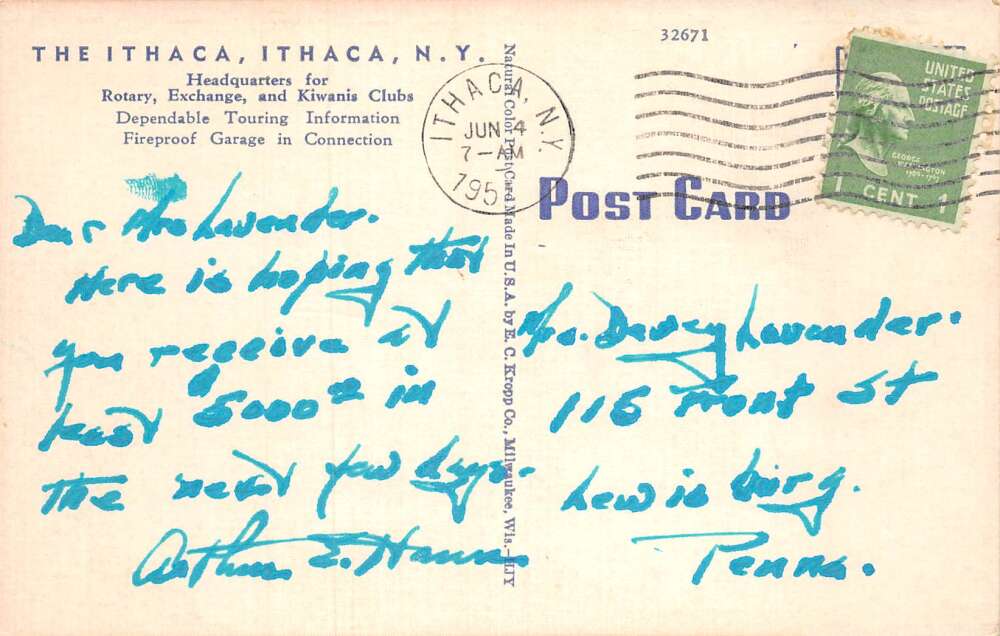 THE ITHACA, ITHACA, N.Y.
Headquarters for
Rotary, Exchange, and Kiwanis Clubs
Dependable Touring Information
Fireproof Garage in Connection
32671
ITHACA, N.Y.
JUN 4
7-AM
195
UNITED
STATES
POSTAGE
GEORGE
WASHINGTON
1789-1797
1 CENT 1
POST CARD
Natural Color Post Card Made In U.S.A. by E. C. Kropp Co., Milwaukee, Wis.-HJY
Dear Mrs Lavender.
Here is hoping that
you receive at
least 5000 in
the next few days.
Arthur E.
Mrs. Dewey Lavender.
115 Front St
Lewisburg.
Penna.